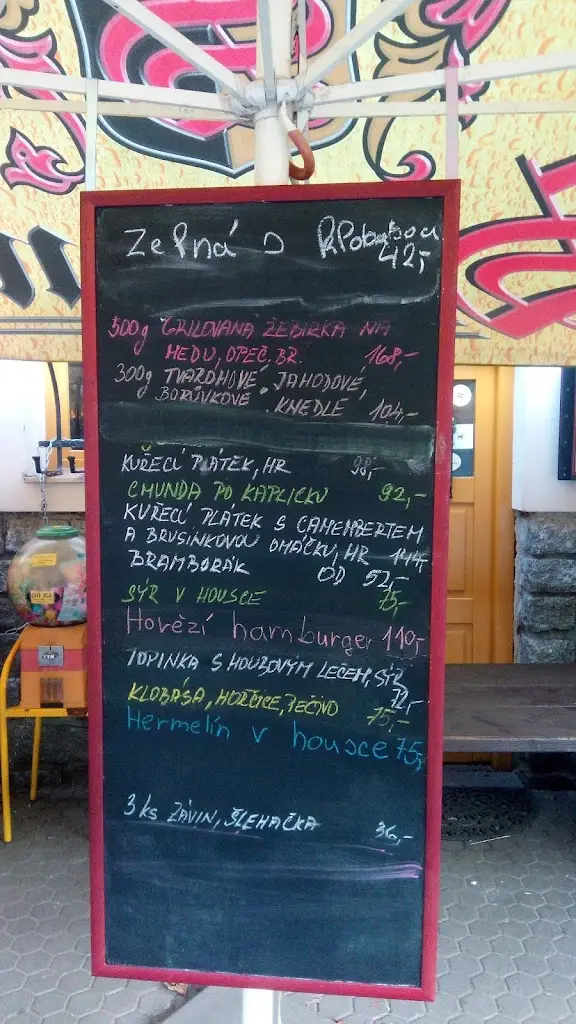 Zelná
42,-
500g GRILOVANÁ ŽEBÍRKA NA
MEDU, OPEČ, BR. 168,-
300g TVAROHOVÉ, JAHODOVÉ,
BORŮVKOVÉ KNEDLE 104,-
KUŘECÍ PLÁTEK, HR 98,-
CMUNDA PO KAPLICKU 92,-
KUŘECÍ PLÁTEK S CAMEMBERTEM
A BRUSINKOVOU OMÁČKU, HR 144,-
BRAMBORÁK OD 52,-
SÝR V HOUSCE 75,-
Hovězí hamburger 110,-
TOPINKA S HOUBOVÝM LEČEM, SÝR
72,-
KLOBÁSA, HOŘČICE, PEČIVO 75,-
Hermelín v housce 75,-
3 ks ZÁVIN, ŠLEHAČKA 36,-